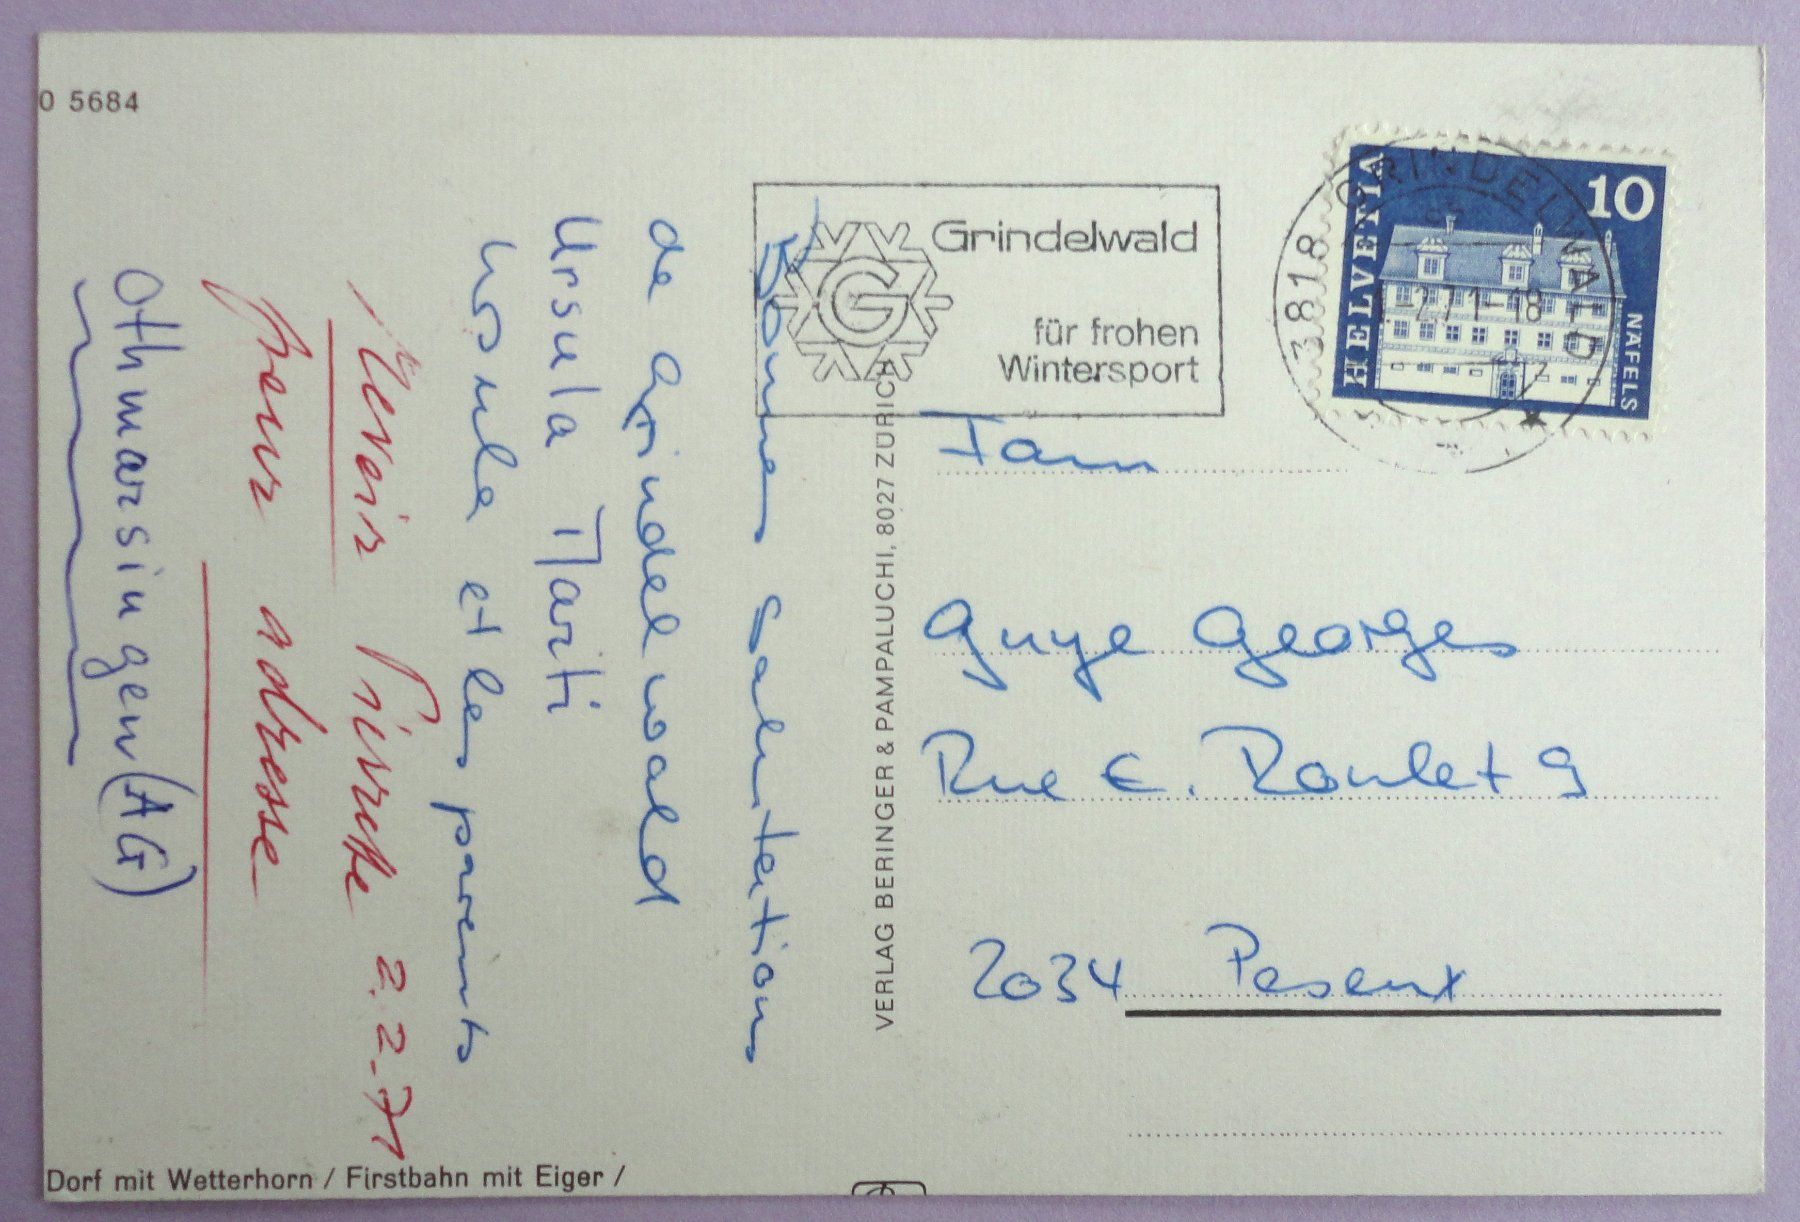 O 5684
Grindelwald
für frohen
Wintersport
3818 GRINDELWALD
1-2.71-18
HELVETIA
10
NÄFELS
Bonnes salutations
de Grindelwald
Ursula Marti
Ursula et les parents
2.2.71
pour adresse
Othmarsingen (AG)
VERLAG BERINGER & PAMPALUCHI, 8027 ZÜRICH
Fam
Guye Georges
Rue E. Roulet 9
2034 Peseux
Dorf mit Wetterhorn / Firstbahn mit Eiger /